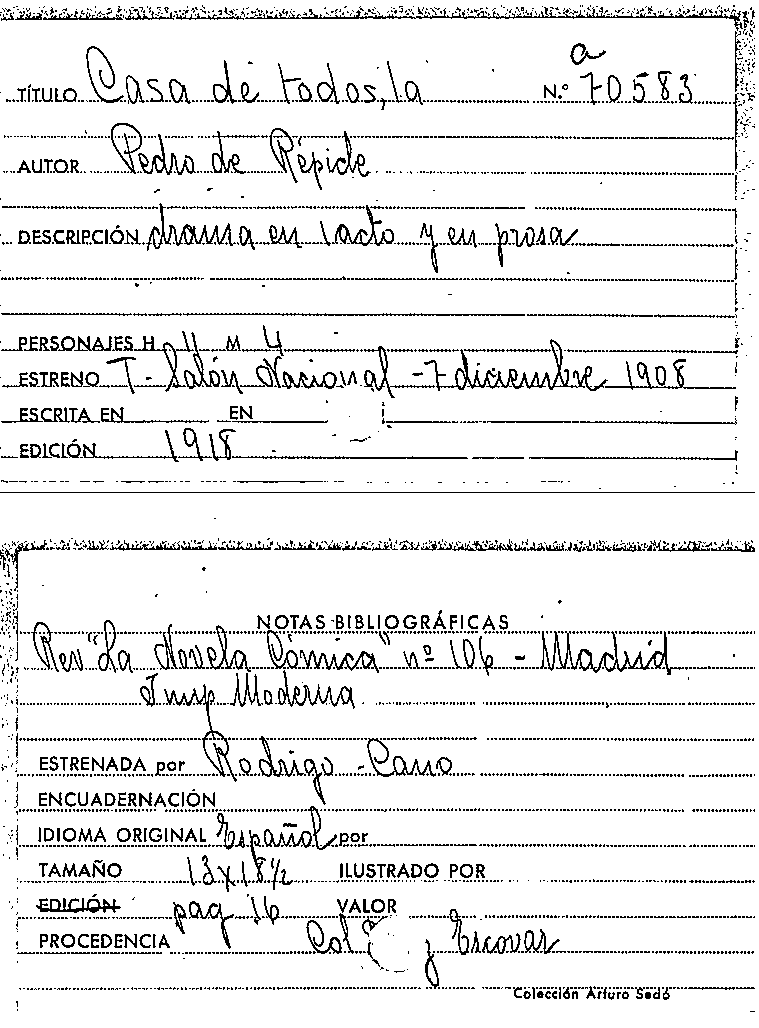 a
TÍTULO Casa de todos, la N.º 70583
AUTOR Pedro de Répide
DESCRIPCIÓN drama en 1 acto y en prosa
PERSONAJES H 11 M 4
ESTRENO T. Salón Nacional - 7 diciembre 1908
ESCRITA EN EN
EDICIÓN 1918
NOTAS BIBLIOGRÁFICAS
Rev "La Novela Cómica" nº 106 - Madrid
Imp Moderna
ESTRENADA por Rodrigo - Cano
ENCUADERNACIÓN
IDIOMA ORIGINAL Español por
TAMAÑO 13 x 18 1/2 ILUSTRADO POR
EDICIÓN pag 16 VALOR
PROCEDENCIA Colª y Escovar
Colección Arturo Sedó